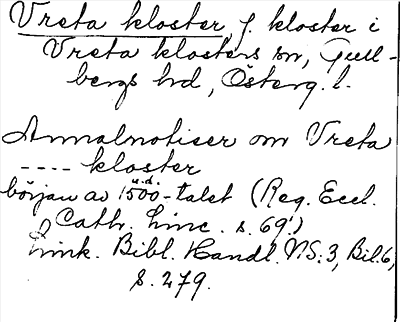 Vreta kloster, f. kloster i
Vreta klosters sn, Gull-
bergs hd, Österg. l.
Annalnotiser om Vreta
---- kloster
u.d.
början av 1500-talet (Reg. Eccl.
Cath. Linc. s. 69.)
Link. Bibl. Handl. NS:3, Bil.6,
s. 279.